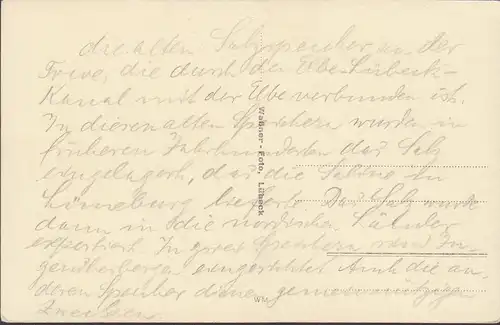 die alten Salzspeicher an der
Trave, die durch den Elbe-Lübeck-
Kanal mit der Elbe verbunden ist.
In diesen alten Speichern wurden in
früheren Jahrhunderten das Salz
eingelagert, das die Saline in
Lüneburg lieferte. Das Salz wurde
dann in die nordischen Länder
exportiert. In zwei Speichern sind Ju-
gendherbergen eingerichtet. Auch die an-
deren Speicher dienen gemeinnützigen
Zwecken.
Waßner - Foto, Lübeck